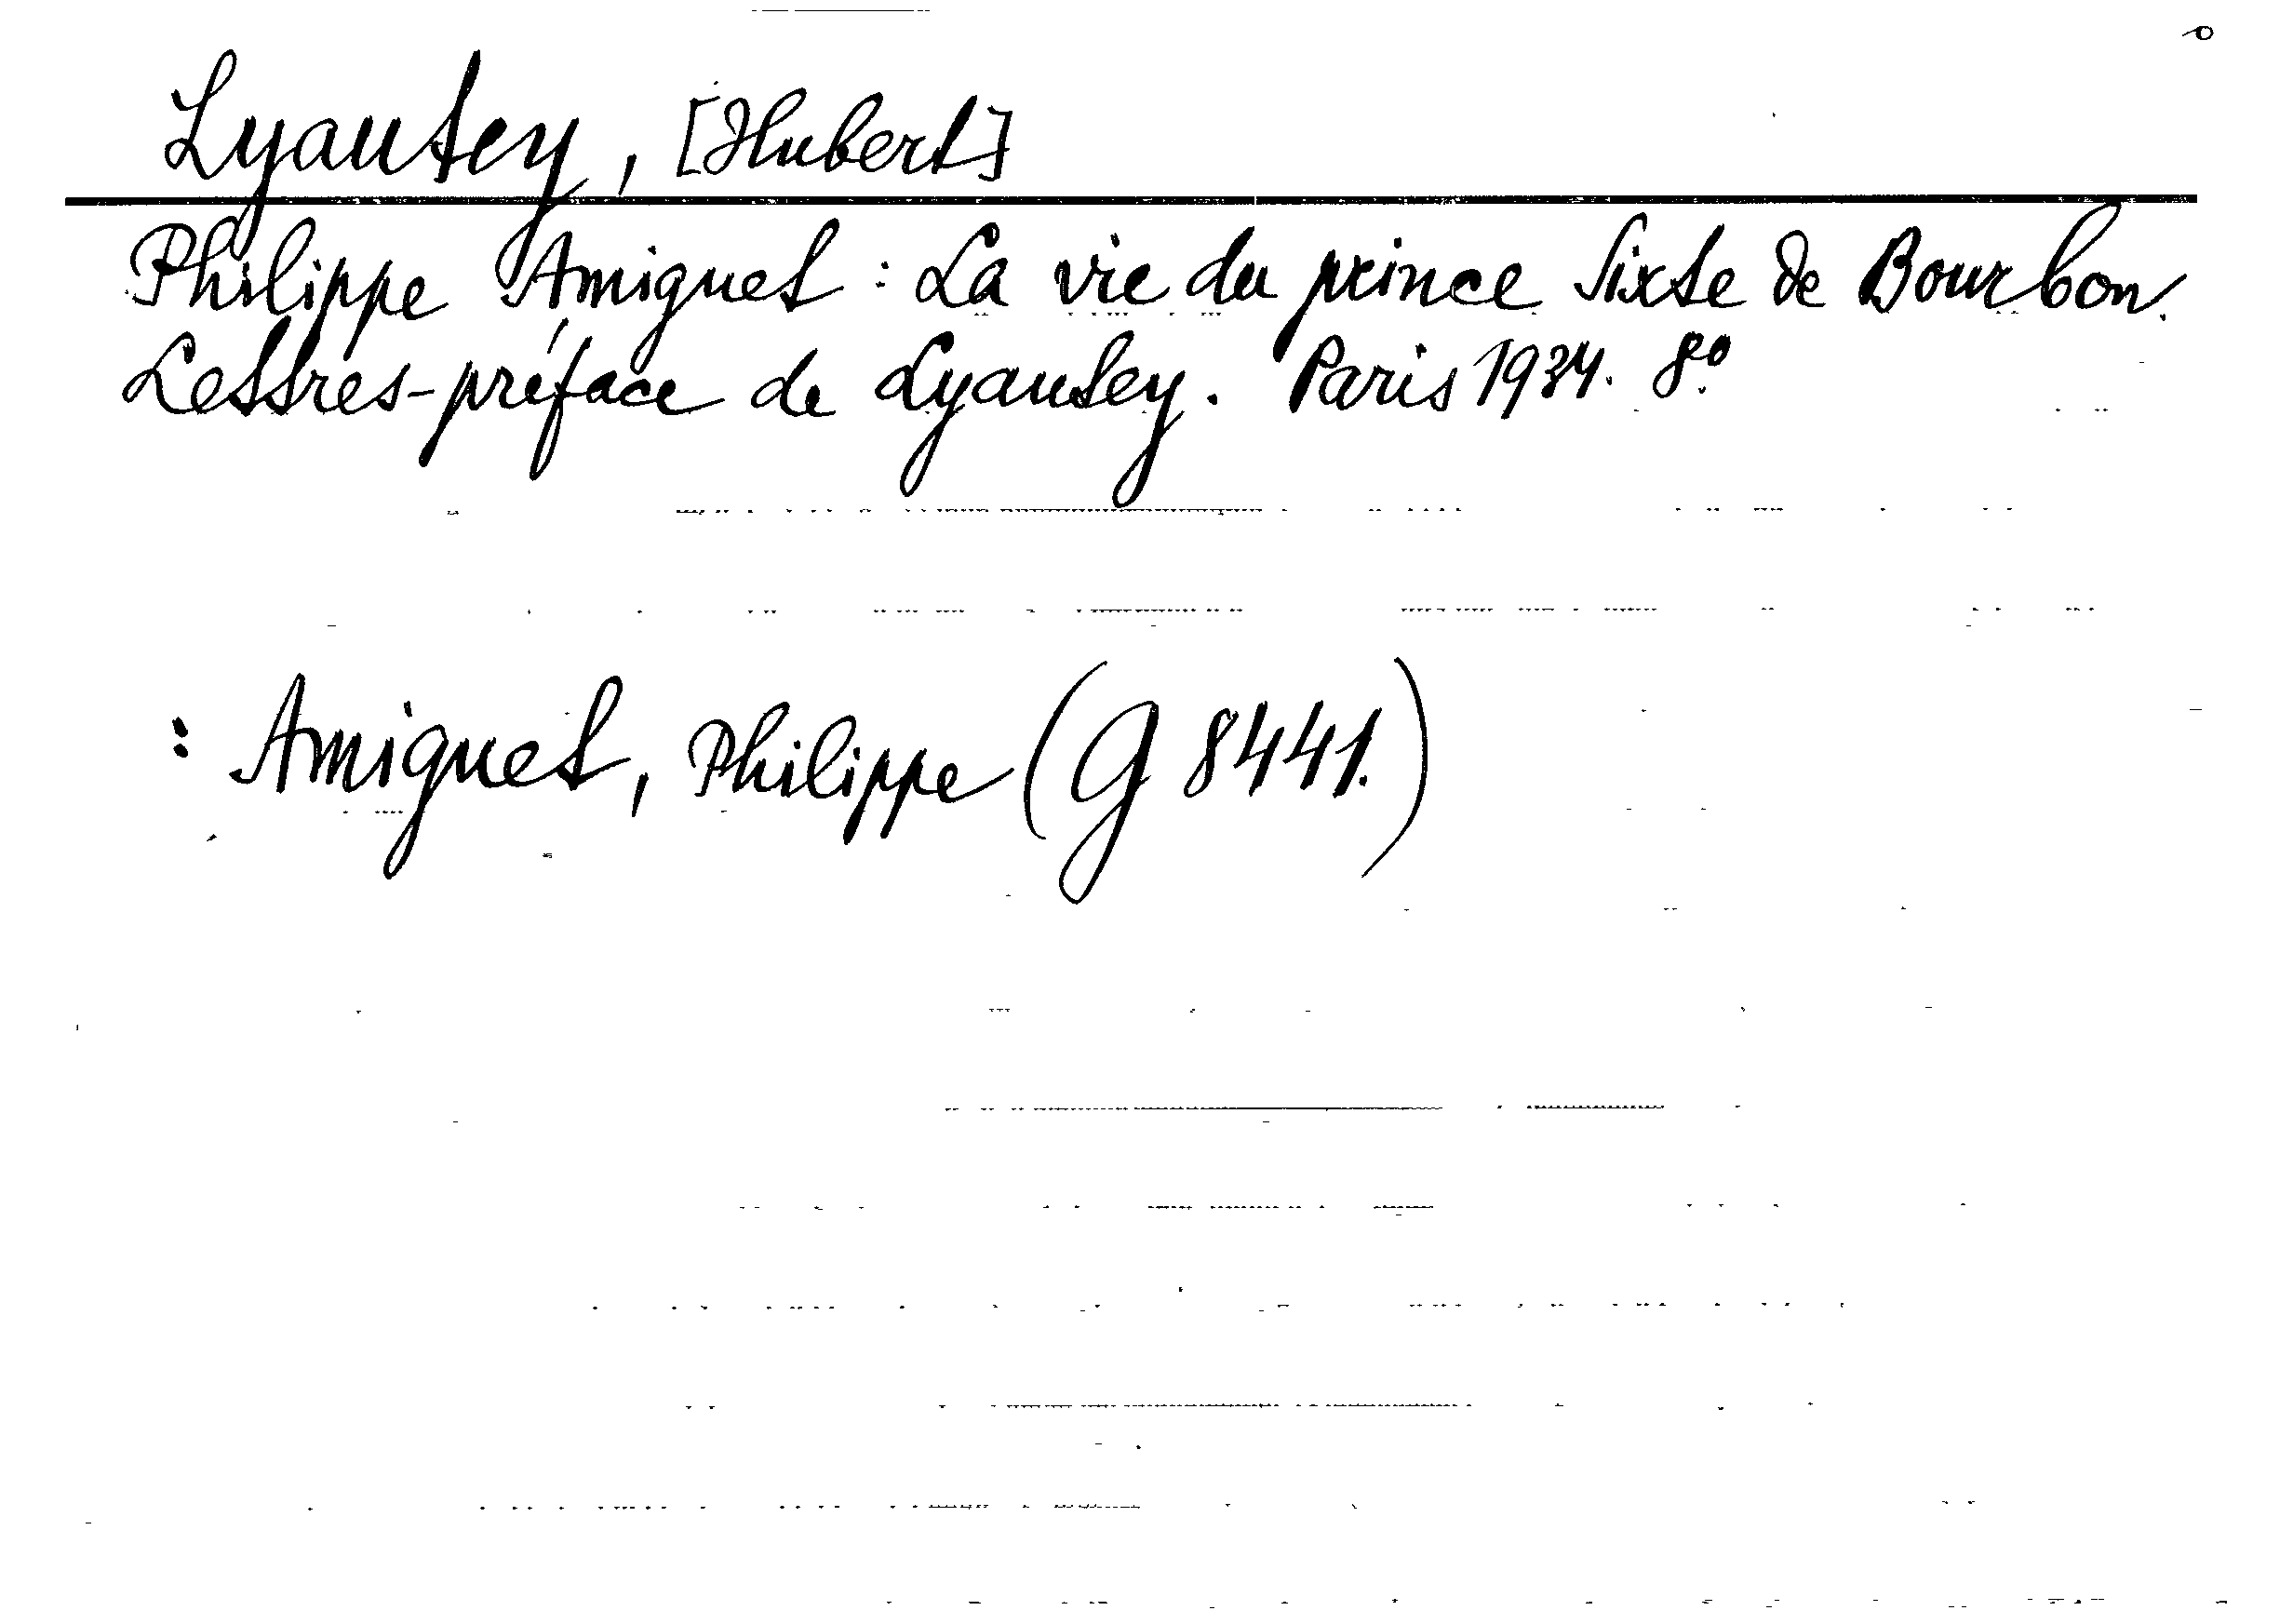 Lyautey, [Hubert]
Philippe Amiguet : La vie du prince Sixte de Bourbon.
Lettres-préface de Lyautey. Paris 1934. 8º
: Amiguet, Philippe (G 8441.)